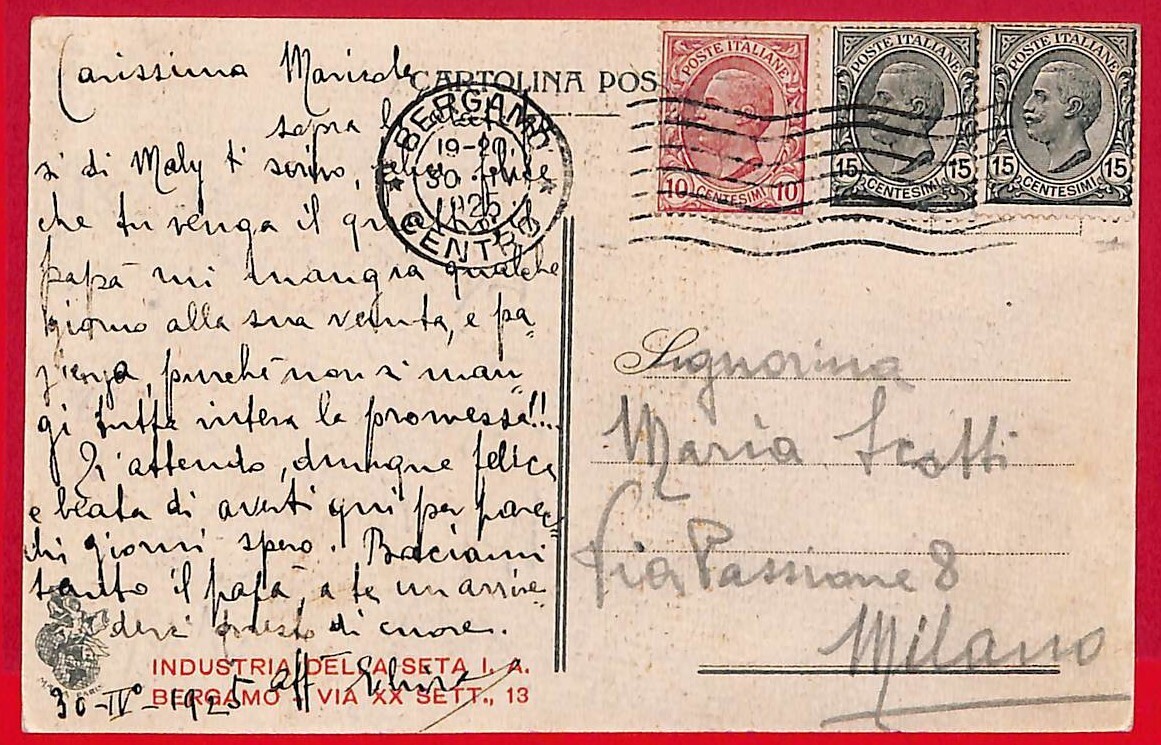 CARTOLINA POS
POSTE ITALIANE
10 CENTESIMI 10
POSTE ITALIANE
15 CENTESIMI 15
POSTE ITALIANE
15 CENTESIMI 15
BERGAMO
19-20
30 IV
1925
CENTRO
Carissima
sopra
si di Maly ti scrivo, felice
che tu venga il
papà mi mangia qualche
giorno alla sua venuta, e pa-
zienza, purchè non si man-
gi tutta intera la promessa!!..
Ti attendo, dunque felice
e beata di averti qui per parec-
chi giorni spero. Baciami
tanto il papà, a te un arrive-
derci presto di cuore.
aff
30-IV°-1925
INDUSTRIA DELLA SETA I. A.
BERGAMO VIA XX SETT., 13
Signorina
Maria Scotti
Via Passione 8
Milano